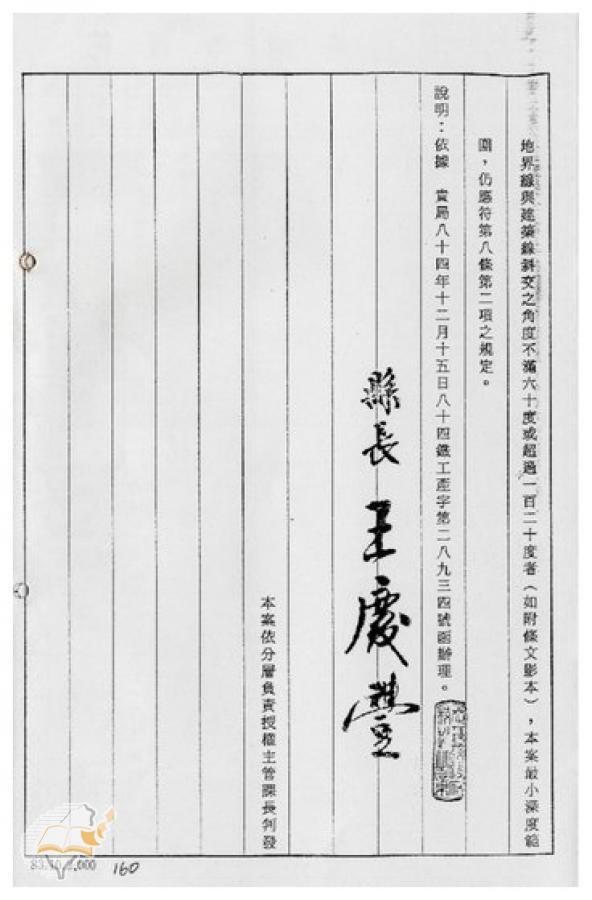 地界線與建築線斜交之角度不滿六十度或超過一百二十度者（如附條文影本），本案最小深度範
圍，仍應符第八條第二項之規定。
說明：依據　貴局八十四年十二月十五日八十四鐵工產字第二八九三四號函辦理。
縣長　王慶豐
本案依分層負責授權主管課長判發
160